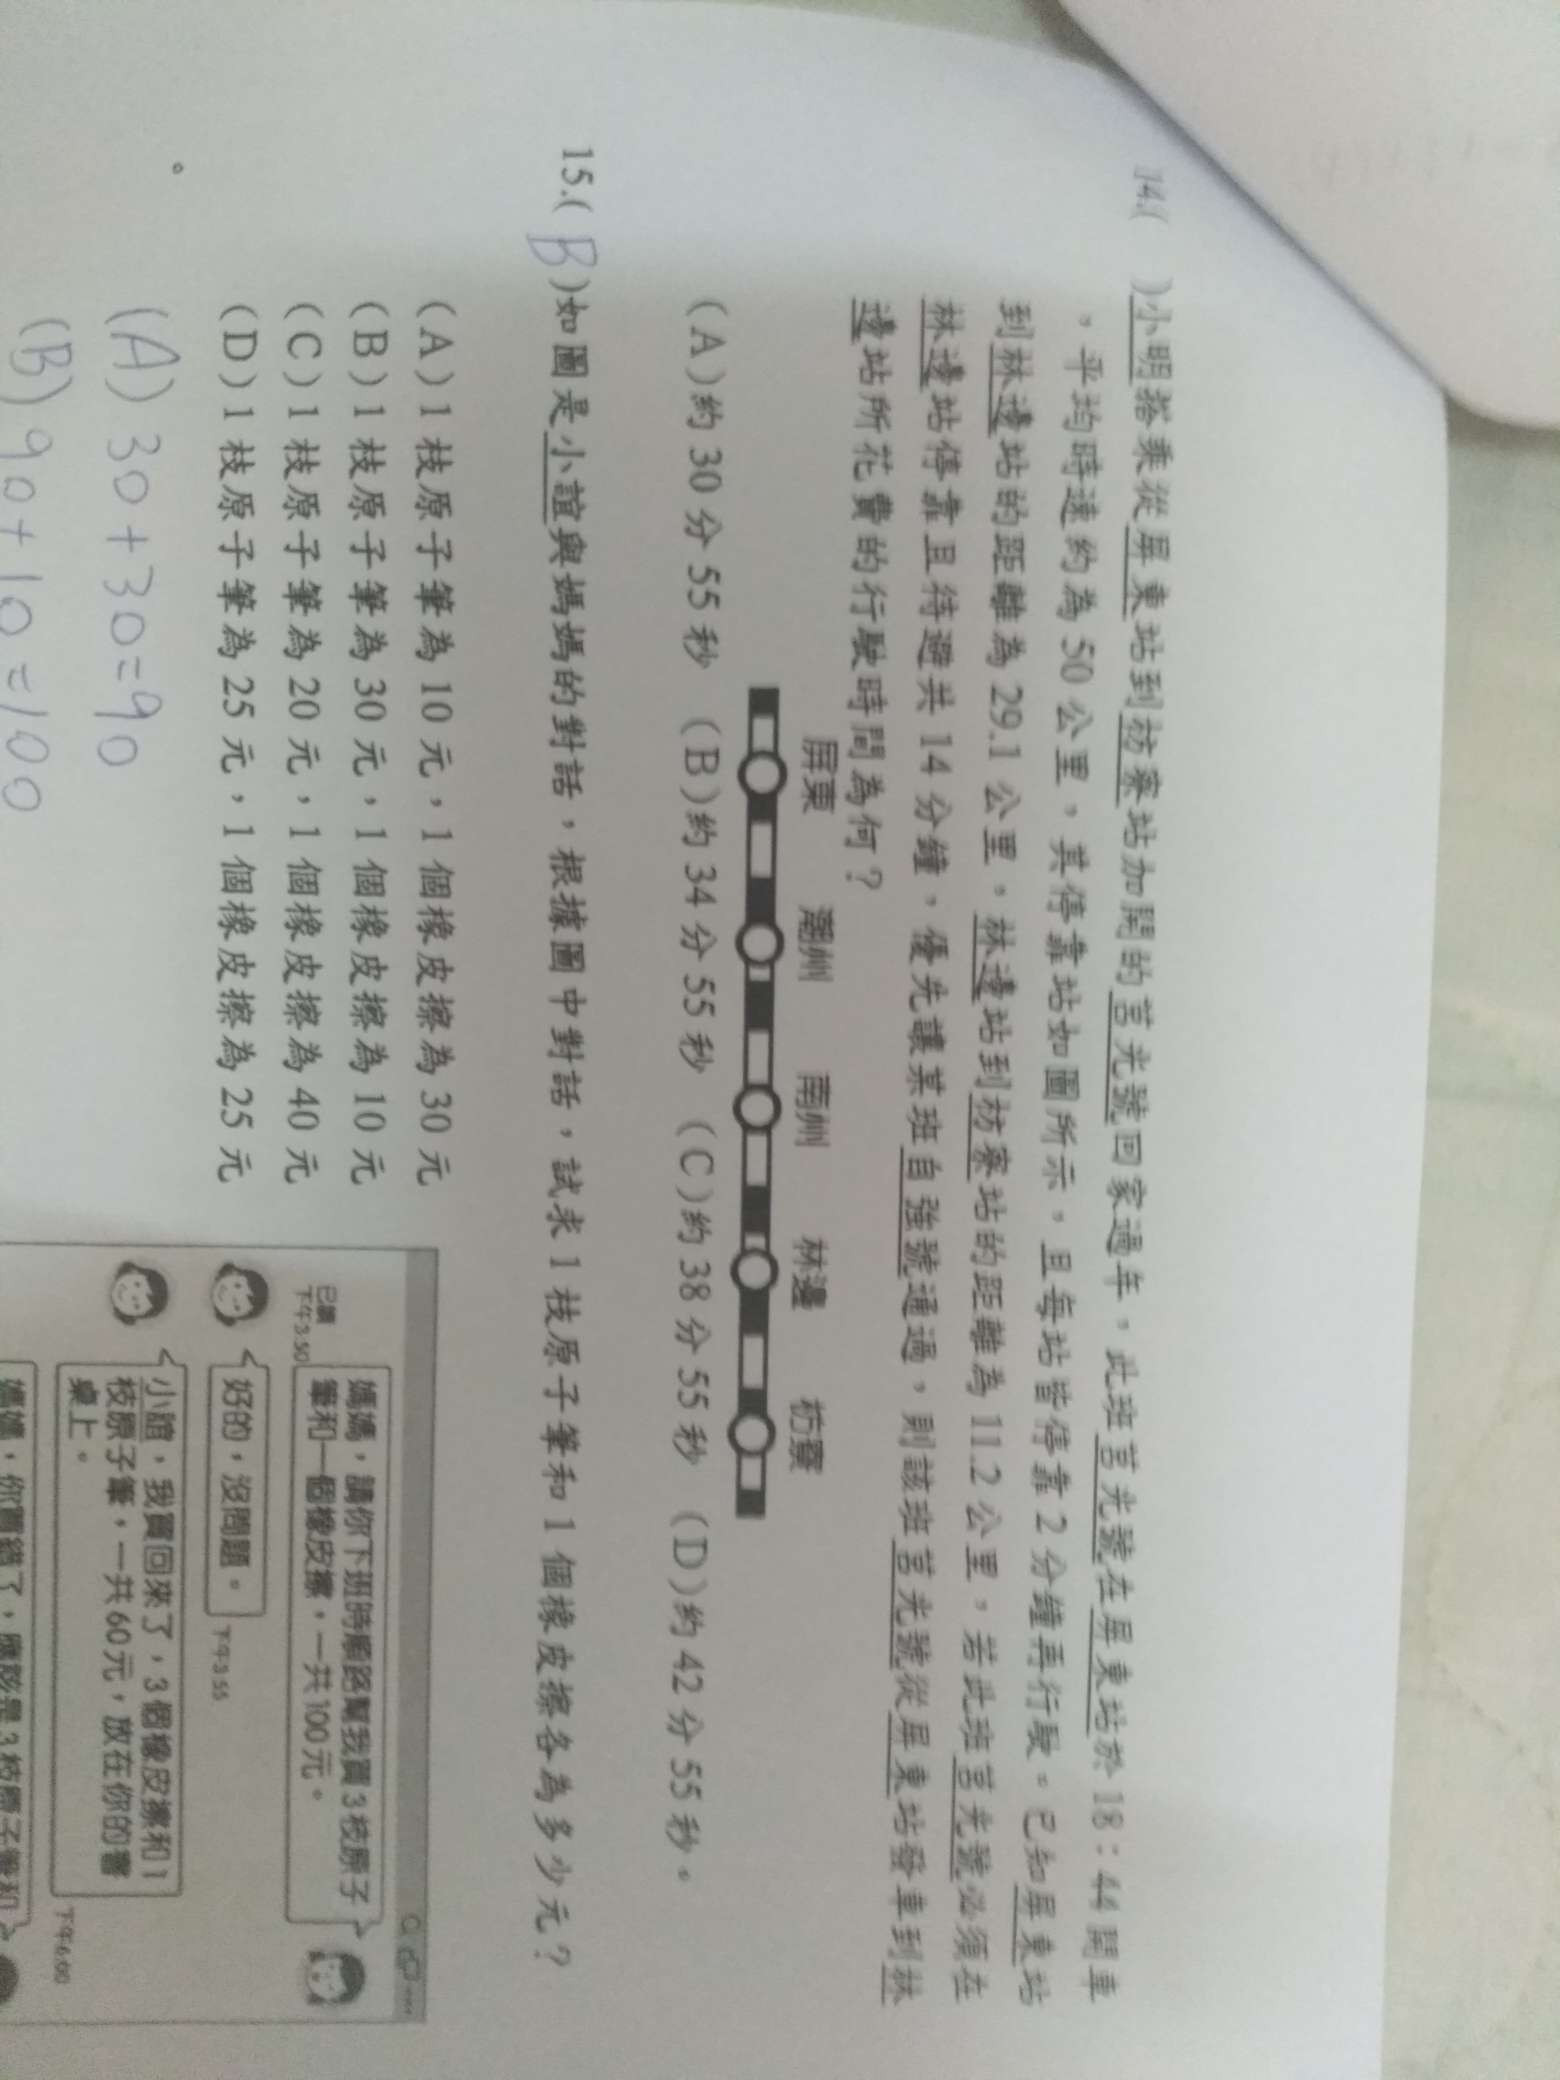 14.(　)小明搭乘從屏東站到枋寮站加開的莒光號回家過年，此班莒光號在屏東站於 18：44 開車
，平均時速約為 50 公里，其停靠站如圖所示，且每站皆停靠 2 分鐘再行駛。已知屏東站
到林邊站的距離為 29.1 公里，林邊站到枋寮站的距離為 11.2 公里，若此班莒光號必須在
林邊站停靠且待避共 14 分鐘，優先讓某班自強號通過，則該班莒光號從屏東站發車到林
邊站所花費的行駛時間為何？
屏東 潮州 南州 林邊 枋寮
(A)約 30 分 55 秒 (B)約 34 分 55 秒 (C)約 38 分 55 秒 (D)約 42 分 55 秒。
15.( B )如圖是小誼與媽媽的對話，根據圖中對話，試求 1 枝原子筆和 1 個橡皮擦各為多少元？
(A) 1 枝原子筆為 10 元，1 個橡皮擦為 30 元
(B) 1 枝原子筆為 30 元，1 個橡皮擦為 10 元
(C) 1 枝原子筆為 20 元，1 個橡皮擦為 40 元
(D) 1 枝原子筆為 25 元，1 個橡皮擦為 25 元
(A) 30+30=90
(B) 90+10=100
媽媽，請你下班時順路幫我買3枝原子
筆和一個橡皮擦，一共100元。
已讀
下午3:50
好的，沒問題。
下午3:55
小誼，我買回來了，3個橡皮擦和1
枝原子筆，一共60元，放在你的書
桌上。
下午6:00
媽媽，你買錯了，應該是3枝原子筆和